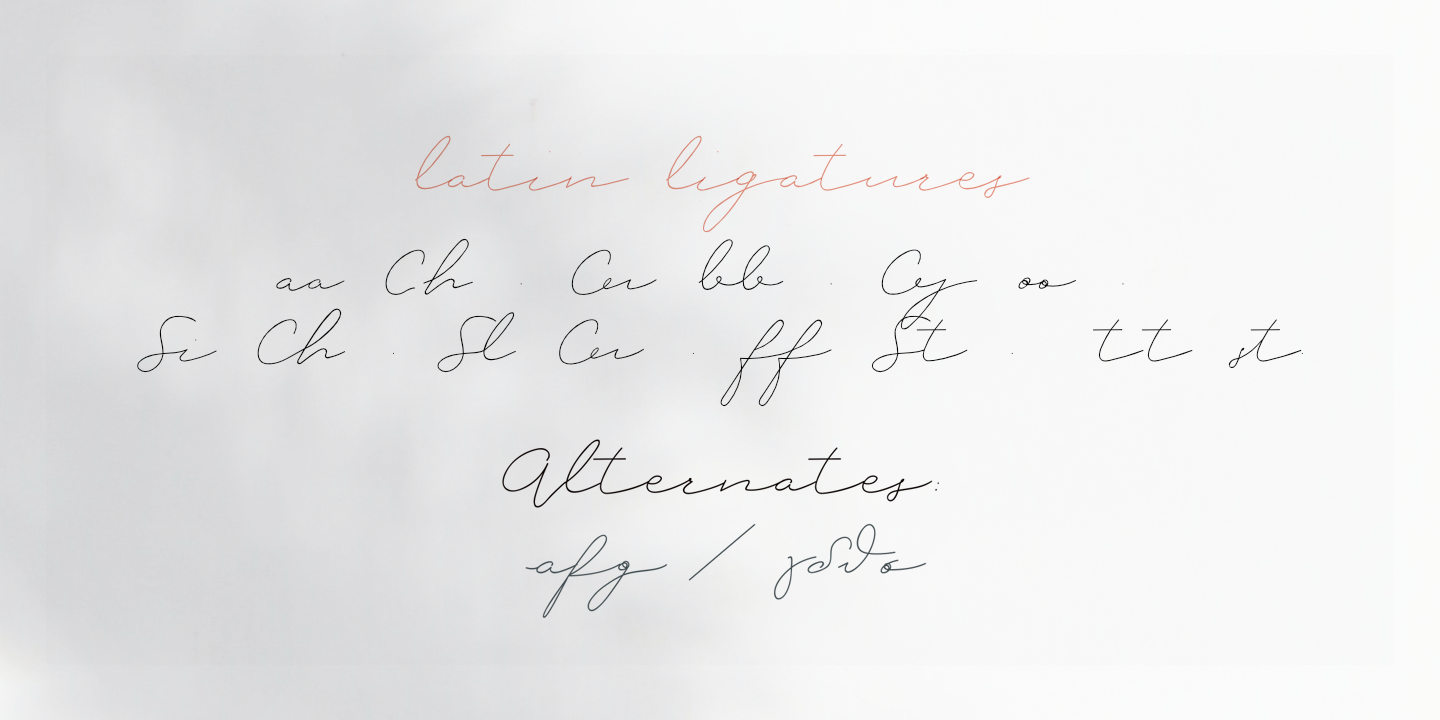 latin ligatures
aa Ch . Cu bb . Cy oo .
Si Ch . Sl Cu . ff St . tt st.
Alternates:
afg / γδθο